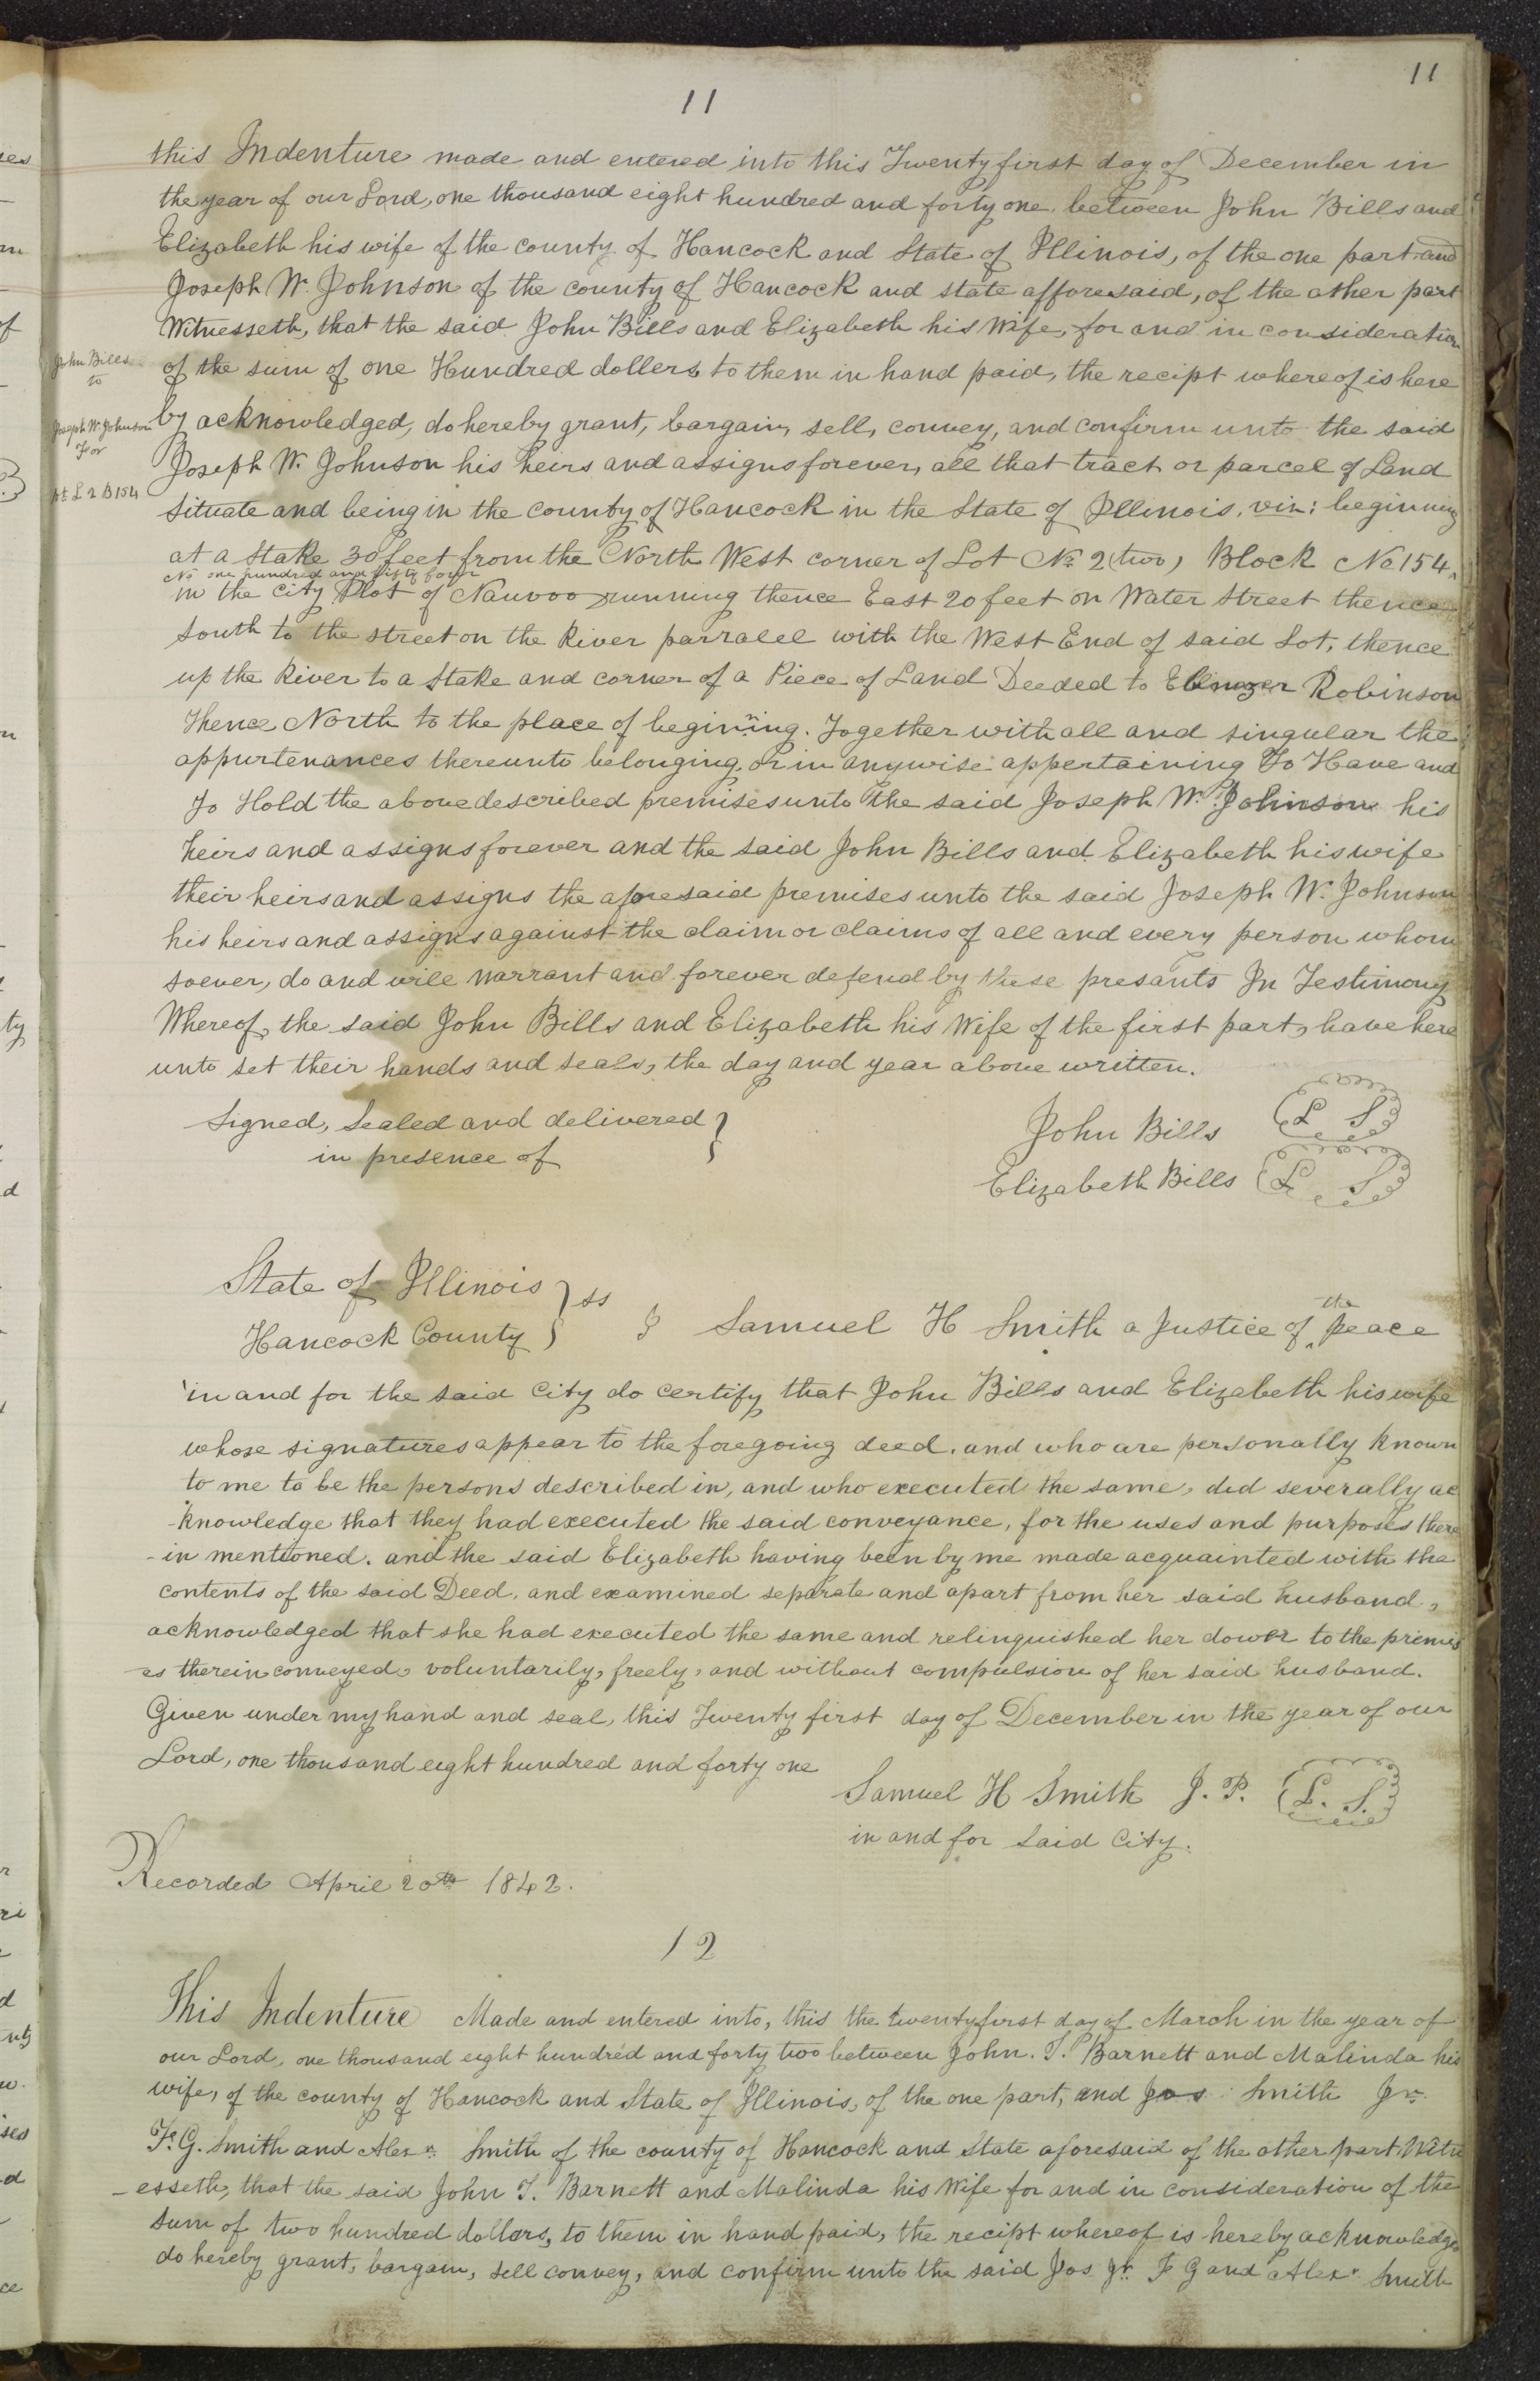 11
11
this Indenture made and entered into this Twenty first day of December in
the year of our Lord, one thousand eight hundred and forty one, between John Bills and
Elizabeth his wife of the county of Hancock and State of Illinois, of the one part and
Joseph W. Johnson of the county of Hancock and state afforesaid, of the other part
Witnesseth, that the said John Bills and Elizabeth his Wife, for and in consideration
John Bills
to
of the sum of one Hundred dollers to them in hand paid, the recipt whereof is here
Joseph W. Johnson
For
by acknowledged, do hereby grant, bargain, sell, convey, and confirm unto the said
Joseph W. Johnson his heirs and assigns forever, all that tract or parcel of Land
Pt L 2 B 154
Situate and being in the county of Hancock in the State of Illinois, viz: beginning
at a Stake 30 feet from the North West corner of Lot No. 2 (two) Block No 154,
No one hundred and fifty four
in the City Plot of Nauvoo running thence East 20 feet on Water Street thence
South to the street on the River parralel with the West End of said Lot, thence
up the River to a Stake and corner of a Piece of Land Deeded to Ebenezer Robinson
Thence North to the place of beginning. Together with all and singular the
appurtenances thereunto belonging, or in anywise appertaining To Have and
To Hold the above described premises unto the said Joseph W. Johnson his
heirs and assigns forever and the said John Bills and Elizabeth his wife
their heirs and assigns the aforesaid premises unto the said Joseph W. Johnson
his heirs and assigns against the claim or claims of all and every person whom
soever, do and will warrant and forever defend by these presants In Testimony
Whereof, the said John Bills and Elizabeth his Wife of the first part, have here
unto set their hands and seals, the day and year above written.
Signed, Sealed and delivered }
in presence of
John Bills L S
Elizabeth Bills L S
State of Illinois } ss
Hancock County
I Samuel H Smith a Justice of the peace
in and for the said City do certify that John Bills and Elizabeth his wife
whose signatures appear to the foregoing deed. and who are personally known
to me to be the persons described in, and who executed the same, did severally ac
-knowledge that they had executed the said conveyance, for the uses and purposes there
-in mentioned. and the said Elizabeth having been by me made acquainted with the
contents of the said Deed, and examined separate and apart from her said husband,
acknowledged that she had executed the same and relinquished her dower to the premis
-es therein conveyed, voluntarily, freely, and without compulsion of her said husband.
Given under my hand and seal, this Twenty first day of December in the year of our
Lord, one thousand eight hundred and forty one
Samuel H Smith J. P. L. S.
in and for Said City.
Recorded April 20th 1842.
12
This Indenture Made and entered into, this the twenty first day of March in the year of
our Lord, one thousand eight hundred and forty two between John. T. Barnett and Malinda his
wife, of the county of Hancock and State of Illinois, of the one part, and Jos Smith Jr.
F. G. Smith and Alexr. Smith of the county of Hancock and State aforesaid of the other part Witn
-esseth, that the said John T. Barnett and Malinda his Wife for and in consideration of the
Sum of two hundred dollars, to them in hand paid, the recipt whereof is hereby acknowledged
do hereby grant, bargain, sell convey, and confirm unto the said Jos Jr. F G and Alexr. Smith